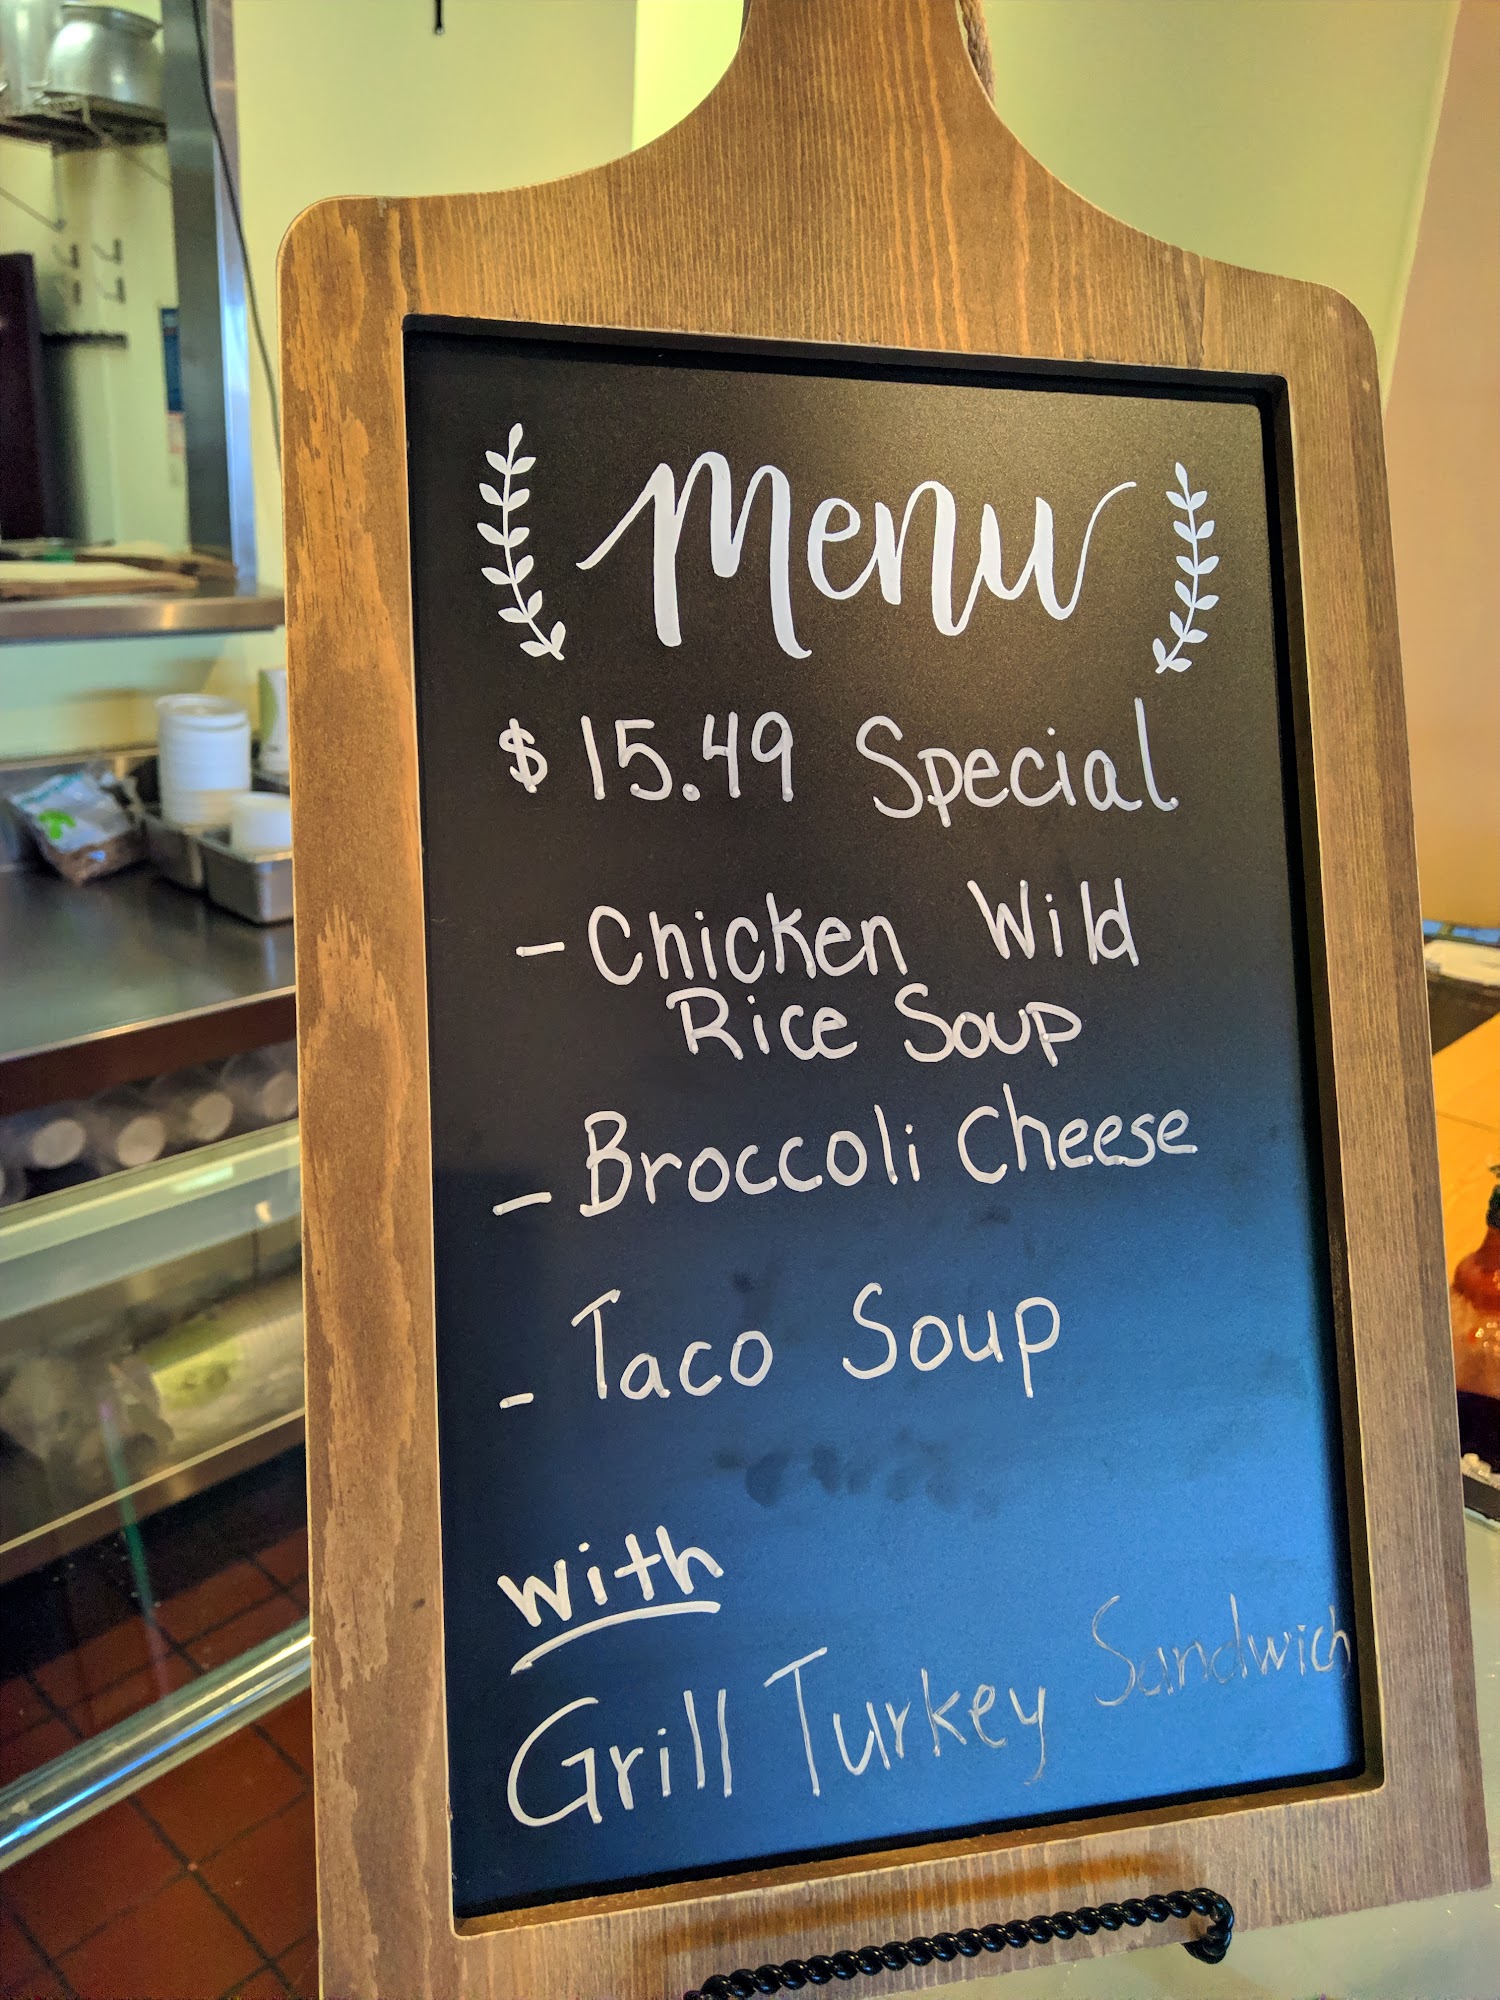 Menu
$15.49 Special
- Chicken Wild
Rice Soup
- Broccoli Cheese
- Taco Soup
With
Grill Turkey Sandwich